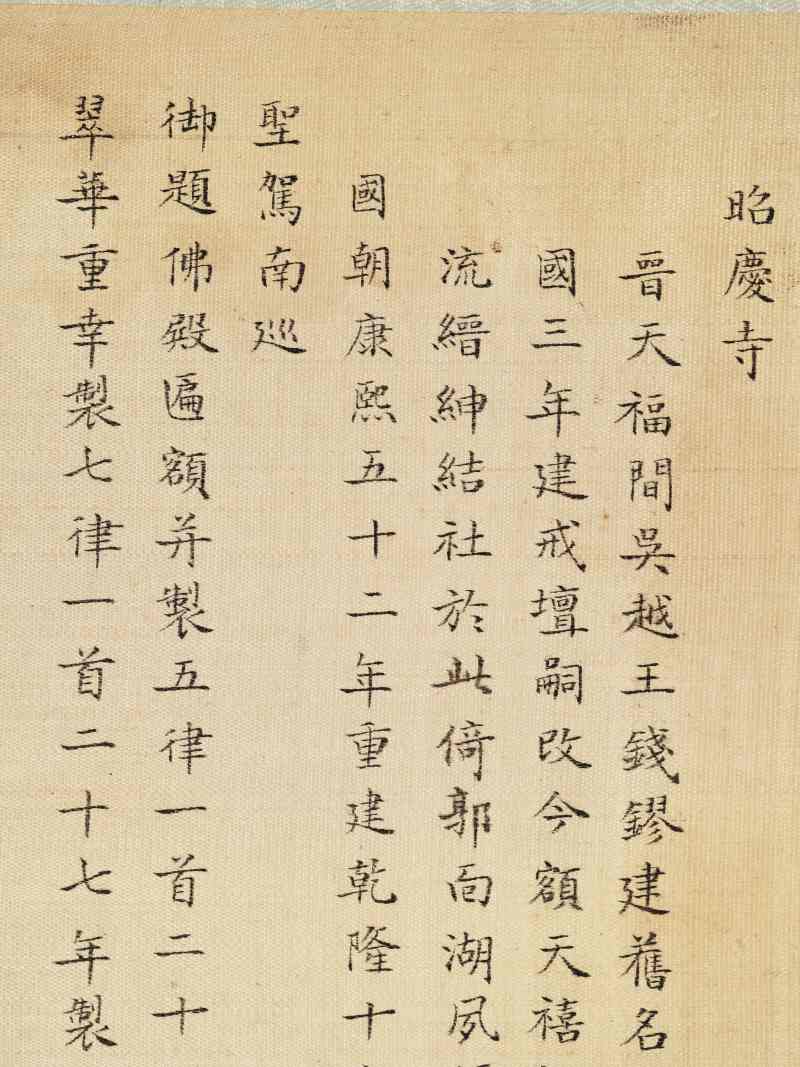 昭慶寺
晉天福間吳越王錢鏐建舊名
國三年建戒壇嗣改今額天禧
流縉紳結社於此倚郭面湖夙
國朝康熙五十二年重建乾隆十
聖駕南巡
御題佛殿匾額并製五律一首二十
翠華重幸製七律一首二十七年製